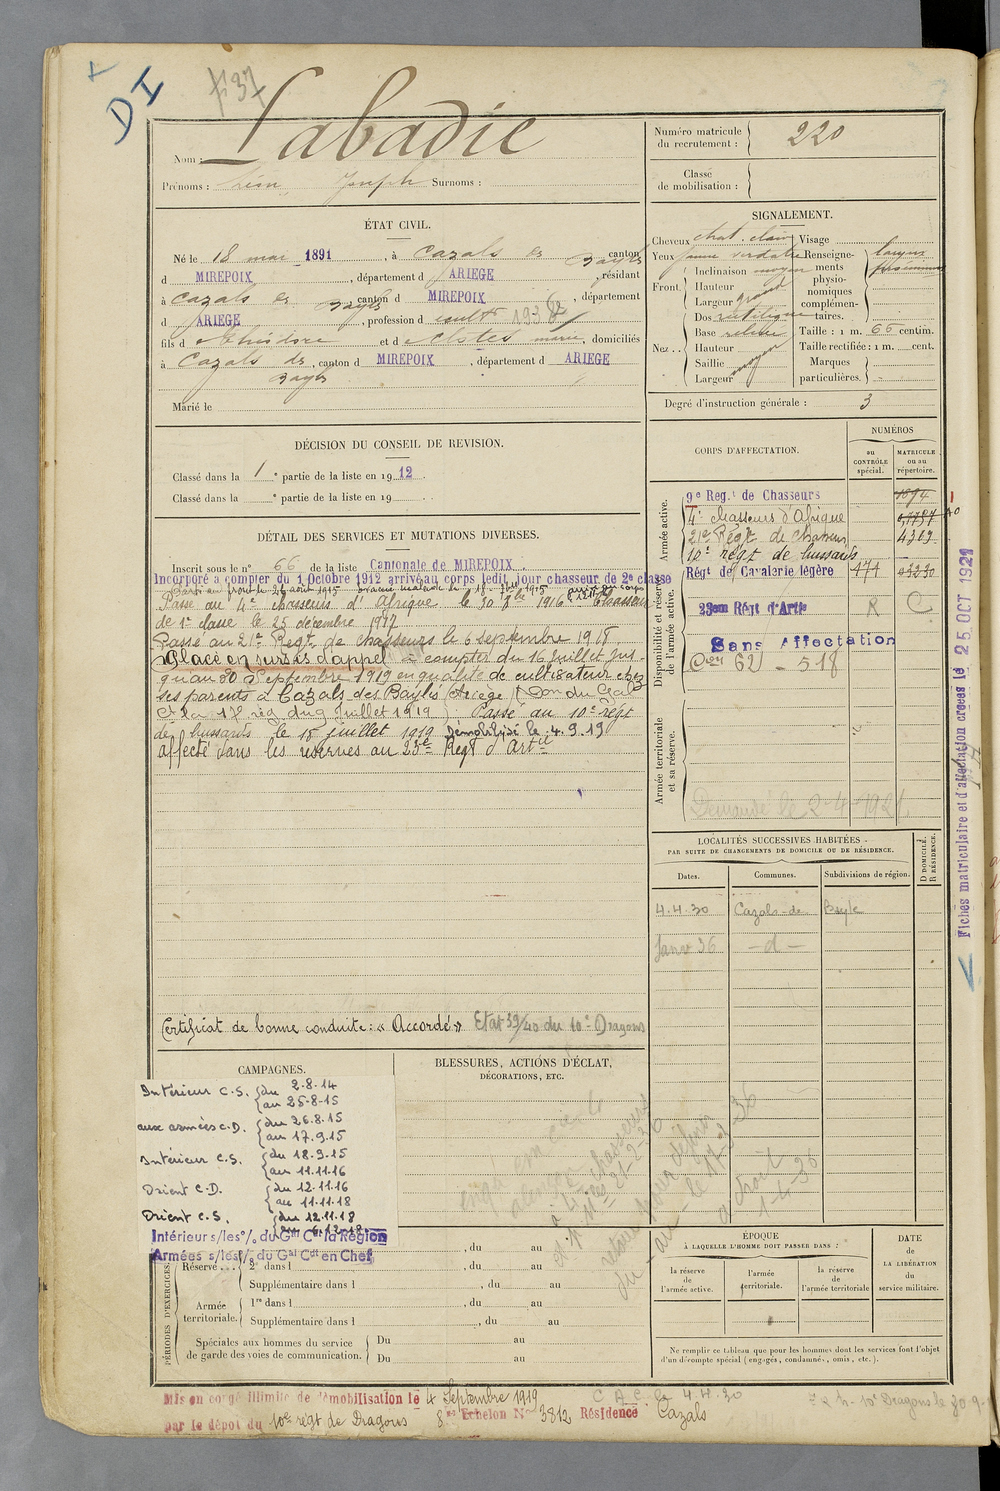 DI
f° 37
Nom : Labadie
Prénoms : Joseph Surnoms :
Numéro matricule du recrutement : 220
Classe de mobilisation :
ÉTAT CIVIL.
Né le 18 mai 1891, à Cazals des Bayles canton
d MIREPOIX, département d ARIEGE, résidant
à Cazals des Bayles canton d MIREPOIX, département
d ARIEGE, profession d cultr
fils d Théodore et d Astes marie, domiciliés
à Cazals des Bayles, canton d MIREPOIX, département d ARIEGE
Marié le
SIGNALEMENT.
Cheveux chat. clair
Yeux jaune verdatre
Front. Inclinaison moyen
Hauteur
Largeur grand
Nez.. Dos rectiligne
Base relevée
Hauteur
Saillie
Largeur moyen
Visage
Renseignements physionomiques complémentaires.
Taille : 1 m. 66 centim.
Taille rectifiée : 1 m. cent.
Marques particulières.
Degré d'instruction générale : 3
DÉCISION DU CONSEIL DE REVISION.
Classé dans la 1e partie de la liste en 1912.
Classé dans la e partie de la liste en 19
DÉTAIL DES SERVICES ET MUTATIONS DIVERSES.
Inscrit sous le n° 66 de la liste Cantonale de MIREPOIX.
Incorporé à compter du 1 Octobre 1912 arrivé au corps ledit jour chasseur de 2e classe
Parti au front le 26 août 1915
Passé au 4e chasseurs d'Afrique le 30 1916 Chasseur
de 1e classe le 25 décembre 1917
Passé au 21e Regt de chasseurs le 6 septembre 1918
Placé en sursis d'appel à compter du 16 Juillet jus-
qu'au 30 Septembre 1919 en qualité de cultivateur chez
ses parents à Cazals des Baylés Ariege
Ct la 17e rég du 9 Juillet 1919) Passé au 10e régt
de hussards le 15 juillet 1919 Démobilisé le 4.9.19
affecté dans les réserves au 23e Regt d'Artie
Certificat de bonne conduite : « Accordé » Etat 39/40 du 10e Dragons
CORPS D'AFFECTATION.
NUMÉROS
au CONTRÔLE spécial.
MATRICULE ou au répertoire.
Armée active.
9e Regt de Chasseurs 1894
4e chasseurs d'Afrique
21e Régt de Chasseurs 4309
10e régt de hussards
Disponibilité et réserve de l'armée active.
Régt de Cavalerie légère 171
23eme Régt d'Artie R C
Sans Affectation
Con 62 - 518
Armée territoriale et sa réserve.
Demande le 2-4-1921
Fiches matriculaire et d'affectation créées le 25 OCT 1921
LOCALITÉS SUCCESSIVES HABITÉES
PAR SUITE DE CHANGEMENTS DE DOMICILE OU DE RÉSIDENCE.
D DOMICILE. R RÉSIDENCE.
Dates. Communes. Subdivisions de région.
4.4.30 Cazals-de Bayle
Janv 36 -d-
CAMPAGNES.
Intérieur C.S. du 2.8.14
au 25-8-15
aux armées C.D. du 26.8.15
au 17.9.15
Intérieur C.S. du 18.9.15
au 11.11.16
Orient C.D. du 12.11.16
au 11.11.18
Orient C.S. du 12.11.18
Intérieur s/les % du Gal Ct la Région
Armées s/les % du Gal Cdt en Chef
BLESSURES, ACTIONS D'ÉCLAT,
DÉCORATIONS, ETC.
PÉRIODES D'EXERCICES.
, du au
Réserve ... 2e dans l , du au
Supplémentaire dans l , du au
Armée territoriale. 1re dans l , du au
Supplémentaire dans l , du au
Spéciales aux hommes du service de garde des voies de communication.
Du au
Du au
ÉPOQUE
À LAQUELLE L'HOMME DOIT PASSER DANS :
la réserve de l'armée active.
l'armée territoriale.
la réserve de l'armée territoriale
DATE de LA LIBÉRATION du service militaire.
Ne remplir ce tableau que pour les hommes dont les services font l'objet
d'un décompte spécial (engagés, condamnés, omis, etc.).
Mis en congé illimité de démobilisation le 4 Septembre 1919 C.A.C. le 4.4.30
par le dépôt du 10e régt de Dragons 8me Echelon N° 3812 Résidence Cazals
10e Dragons le 30-9-